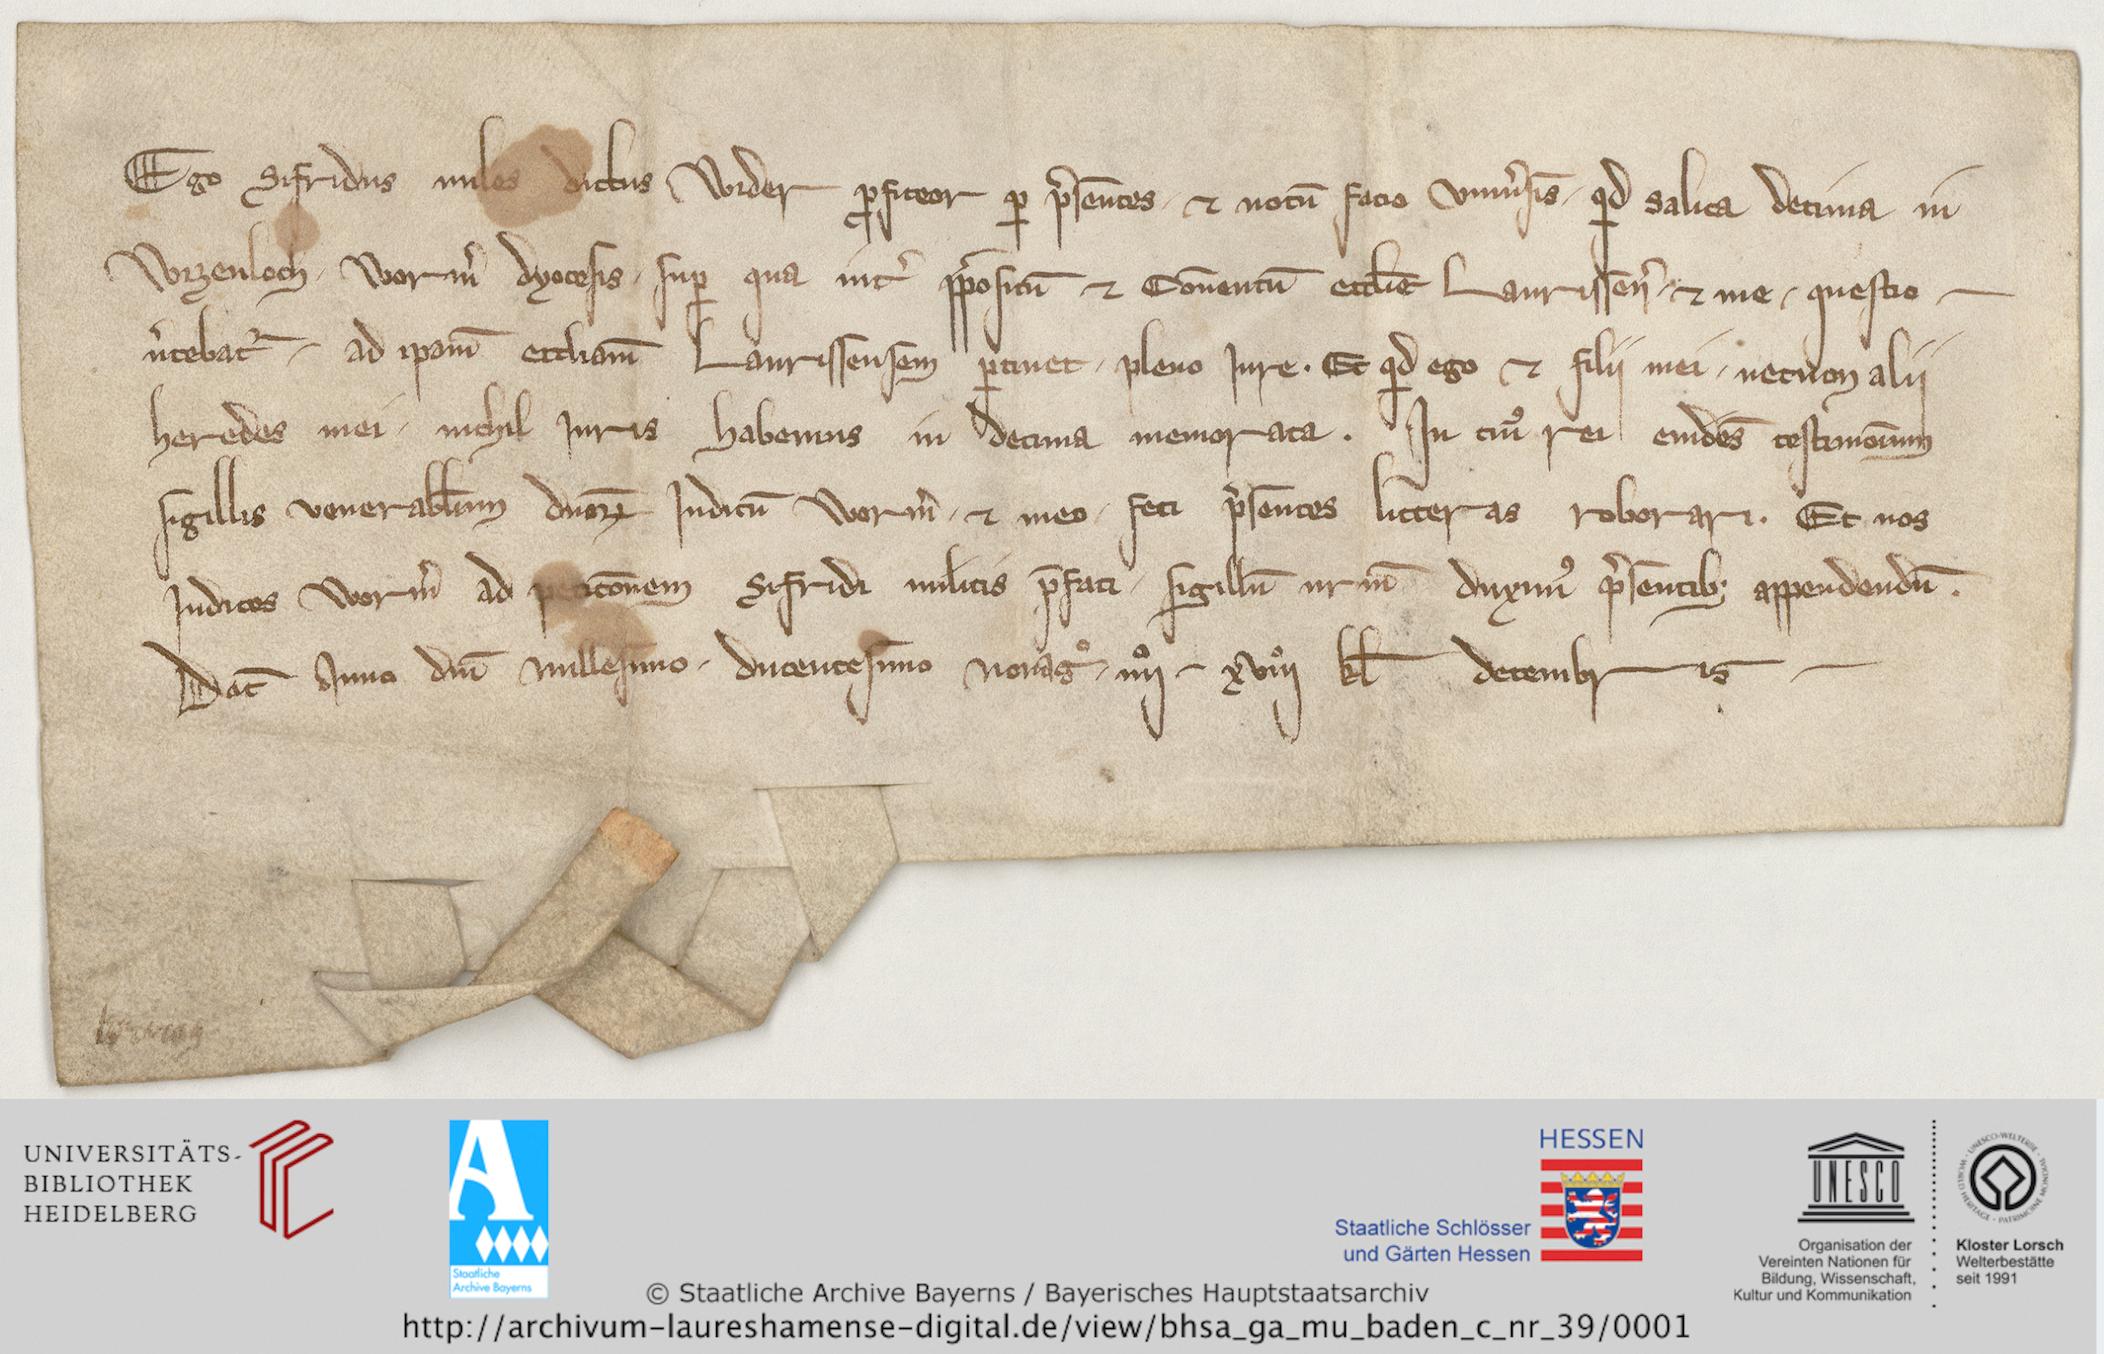 Ego Sifridus miles dictus Wider ꝓfiteor ꝑ p̄sentes · ⁊ notū facio vniu̾sis · qd salica decima in
Wizenloch · Worm̄ dyocesis · suꝑ qua int̾ p̄positū ⁊ Conuentū ecclīe Laurissen̄ · ⁊ me · questio
u̾tebat᷑ · ad ipam̄ eccliam̄ Laurissensem ꝑtinet · pleno Jure . Et qd ego ⁊ filii mei · necnon alii
heredes mei · nichil Juris habemus in decima memorata . In cuiꝰ rei euidēs testimoīum
sigillis venerabiliūm dn̄oꝝ Judicū Worm̄ · ⁊ meo · feci p̄sentes litteras roborari . Et nos
Judices Worm̄ ad peticōnem Sifridi militis p̄fati · sigillū nr̄m duximꝰ p̄sentibꝫ appendendū .
Dat̄ Anno dn̄i Millesimo · ducentesimo nonagͦ · iiijͦ · xviijͦ kl̄ decembris
UNIVERSITÄTS-
BIBLIOTHEK
HEIDELBERG
A
Staatliche
Archive Bayerns
HESSEN
Staatliche Schlösser
und Gärten Hessen
UNESCO
Organisation der
Vereinten Nationen für
Bildung, Wissenschaft,
Kultur und Kommunikation
Kloster Lorsch
Welterbestätte
seit 1991
© Staatliche Archive Bayerns / Bayerisches Hauptstaatsarchiv
http://archivum-laureshamense-digital.de/view/bhsa_ga_mu_baden_c_nr_39/0001